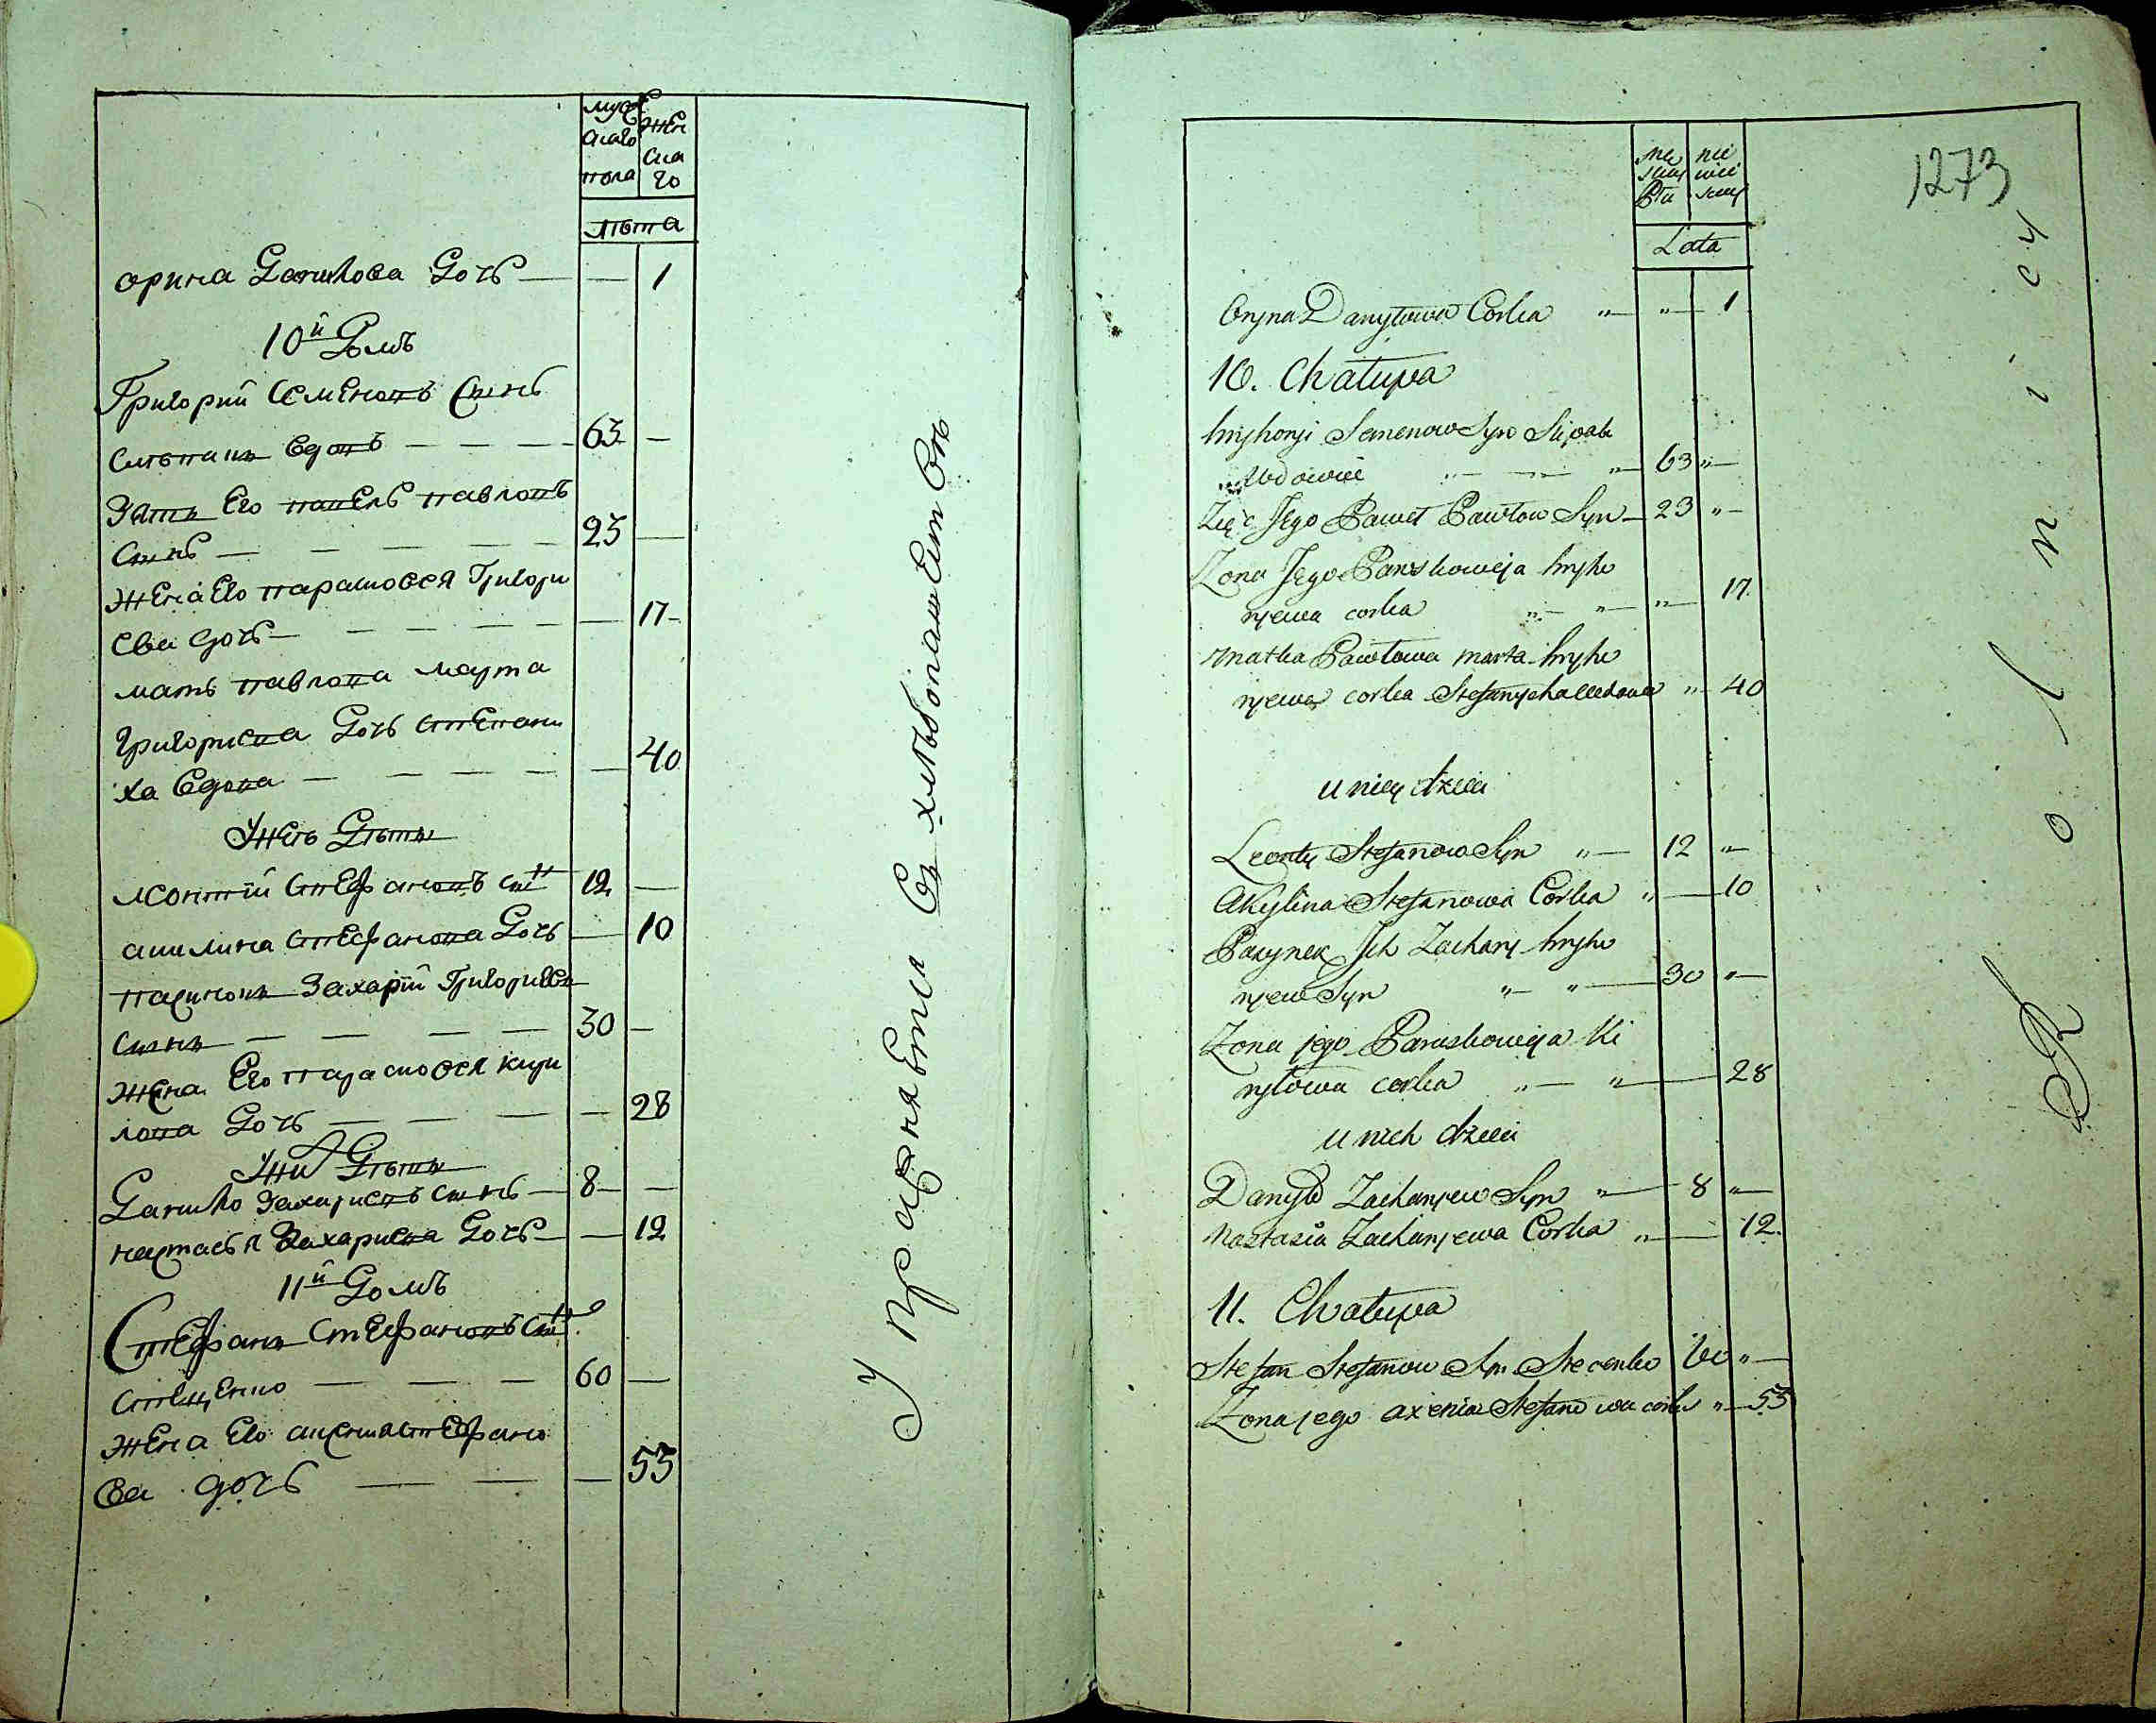 мужескаго пола
женскаго
лѣта
орина Данилова дочь — — 1
10й домъ
Григорий Семеновъ сынъ
слѣпакъ вдовъ — — — 63 —
Зять Его павелъ павловъ
сынъ — — — — 23 —
жена Его парасковея Григори
ева дочь — — — — — 17
мать павлова марта
григориева дочь степани
ха вдова — — — — — 40
У неѣ дѣти
леонтий Стефановъ сынъ 12 —
акилина Стефанова дочь — 10
пасинокъ Захарий Григориевъ
сынъ — — — — 30 —
жена Его парасковея кири
лова дочь — — — — 28
У них дѣти
данило Захариевъ сынъ — 8 —
настасья Захариева дочь — — 12
11й домъ
Стефанъ Стефановъ сынъ
стеценко — — — 60 —
жена Его аксения Стефано
ва дочь — — — 55
Упражняется въ хлѣбопашествѣ
1273
męskiej płci
niewieściej
Lata
Oryna Danyłowa Corka „ „ 1
10. Chałupa
hryhoryi Semenow Syn Slipak
Wdowiec „ — „ 63 „
Zięć Jego Paweł Pawłow Syn — 23 „
Zona Jego Paraskowija hryho
ryewa corka „ „ „ 17
matka Pawłowa marta hryho
ryewa corka Stefanycha wdowa „ 40
u niey dzieci
Leonty Stefanow Syn „ 12 „
Akylina Stefanowa Corka „ — 10
Pasynek Ich Zachary hryho
ryew Syn „ „ — 30 „
Zona jego Paraskowija Ki
ryłowa corka „ „ — 28
u nich dzieci
Danyło Zacharyew Syn „ — 8 „
Nastasia Zacharyewa Corka „ — 12
11. Chałupa
Stefan Stefanow Syn Stecenko 60 „
Zona jego axenia Stefanowa corka „ 55
Rolnicy